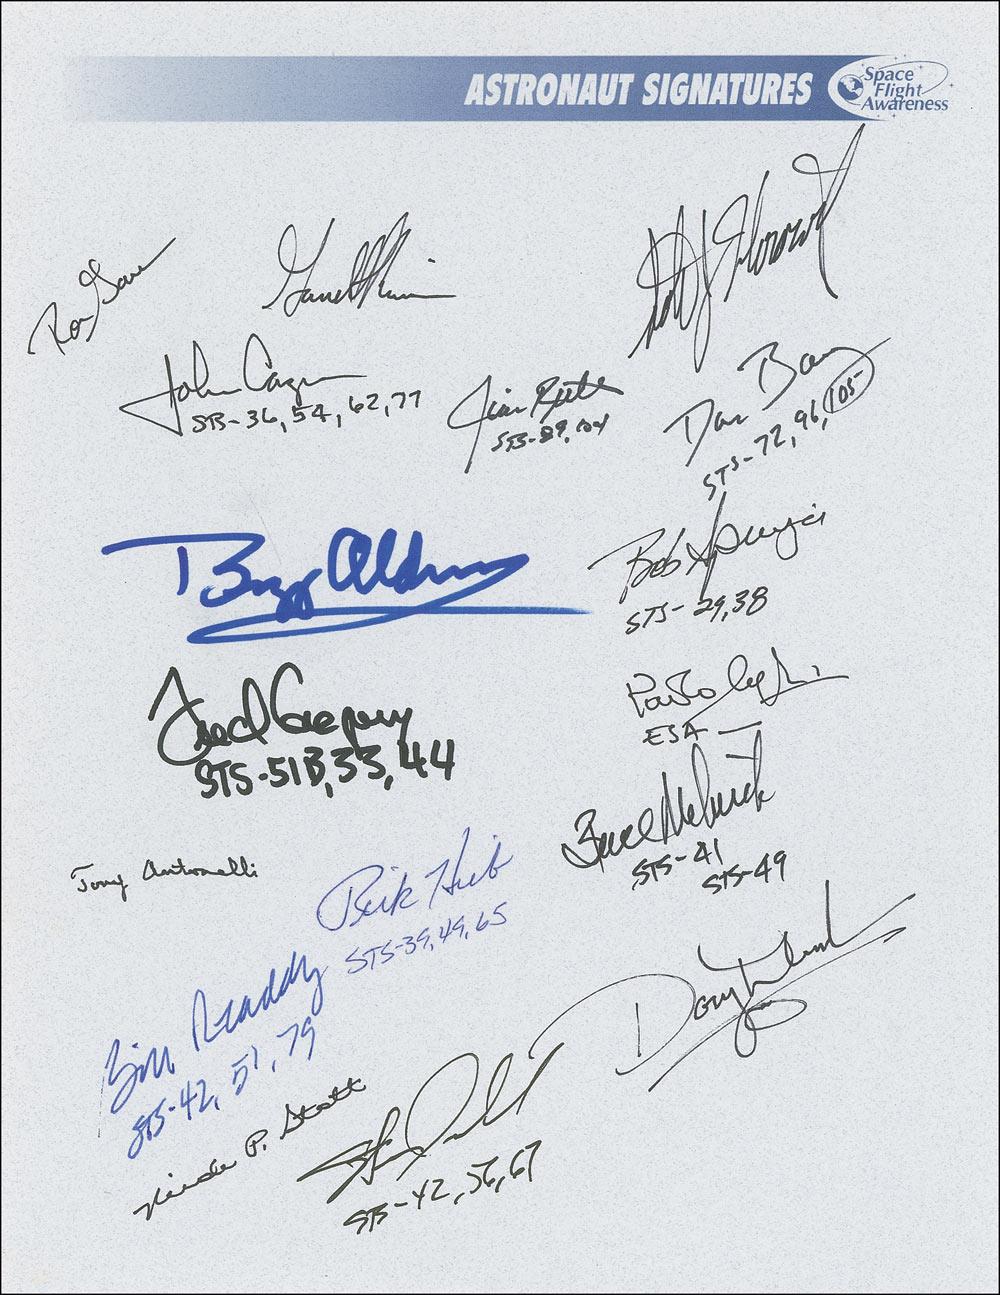 ASTRONAUT SIGNATURES
Space
Flight
Awareness
Ron Garan
Garrett
Scott J Horowitz
John Casper
STS-36, 54, 62, 77
Jim Reilly
STS-89, 104
Dan Barry
STS-72, 96, 105
Buzz Aldrin
Bob Springer
STS-29, 38
Fred Gregory
STS-51B, 33, 44
Paolo
ESA
Bruce Melnick
STS-41
STS-49
Tony Antonelli
Rick Hieb
STS-39, 49, 65
Bill Readdy
STS-42, 51, 79
Doug Wheelock
Nicole P. Stott
Steve
STS-42, 56, 67